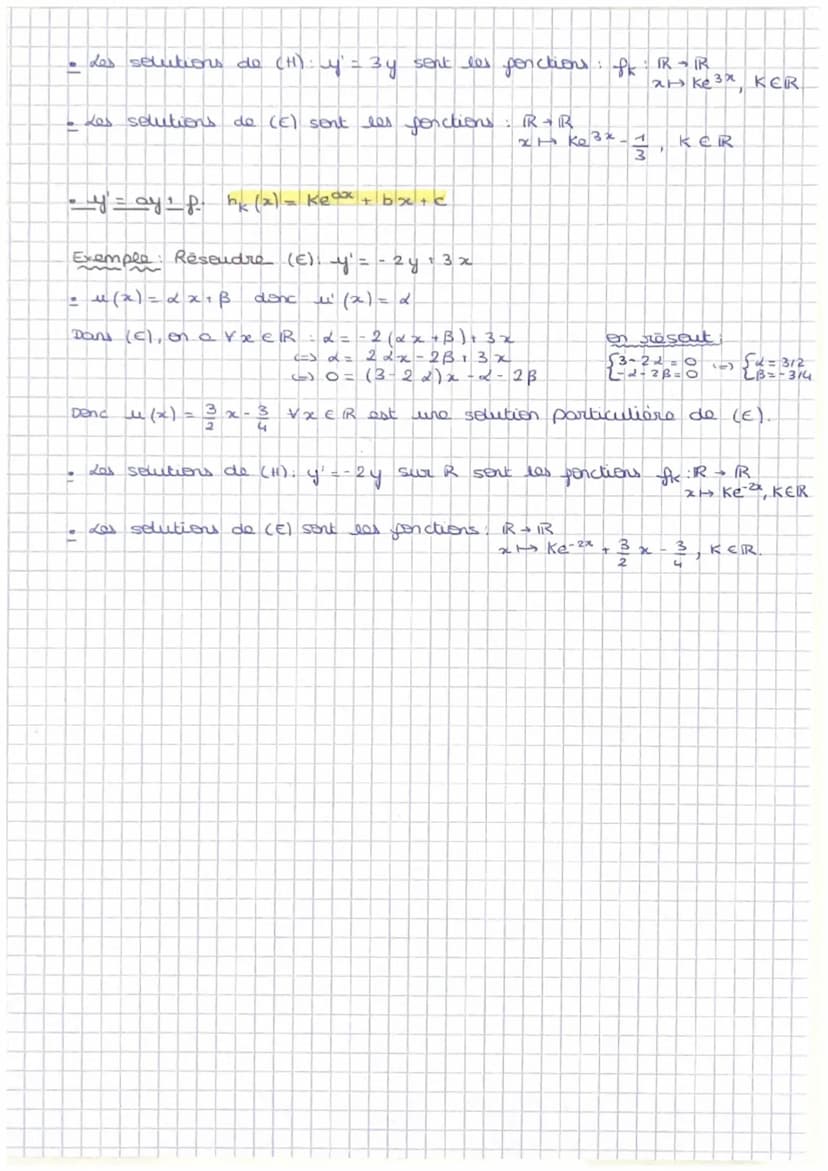 - Les solutions de (H): y' = 3y sont les fonctions : fk : ℝ → ℝ
x ↦ Ke^{3x}, K∈ℝ
- Les solutions de (E) sont les fonctions : ℝ → ℝ
x ↦ Ke^{3x} - 1/3, K ∈ ℝ
- y' = ay + f. hk (x) = Ke^{ax} + bx + c
Exemple : Résoudre (E): y' = -2y + 3x
- u(x) = αx + β donc u'(x) = α
Dans (E), on a ∀x∈ℝ : α = -2(αx + β) + 3x
(=) α = 2αx - 2β + 3x
(=) 0 = (3-2α)x - α - 2β
en résout :
{3-2α = 0
{-α-2β = 0
(=) {α = 3/2
{β = -3/4
Donc u(x) = 3/2 x - 3/4 ∀x∈ℝ est une solution particulière de (E).
- Les solutions de (H): y' = -2y sur ℝ sont les fonctions fk : ℝ → ℝ
x ↦ Ke^{-2x}, K∈ℝ
- Les solutions de (E) sont les fonctions : ℝ → ℝ
x ↦ Ke^{-2x} + 3/2 x - 3/4, K∈ℝ.